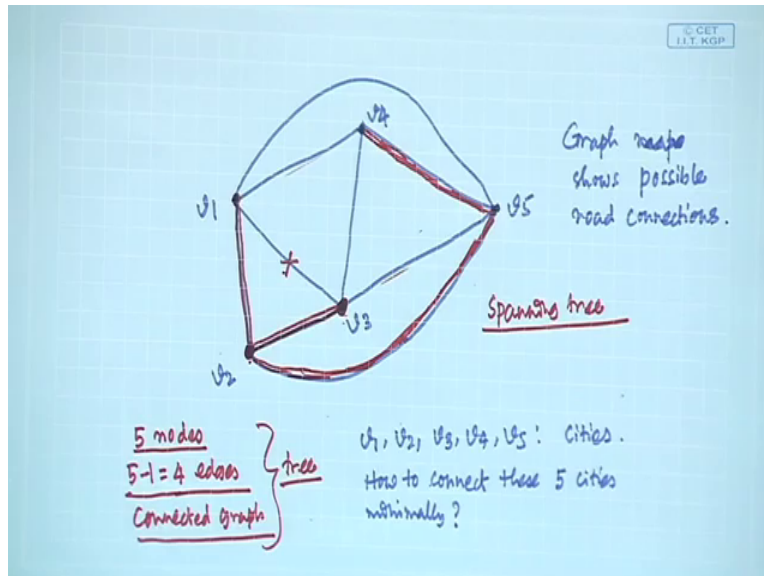 © CET
I.I.T. KGP
v4
Graph maps
shows possible
road connections.
v1
v5
v3
Spanning tree
v2
5 nodes
5-1=4 edges
Connected graph
tree
v1, v2, v3, v4, v5 : Cities.
How to connect these 5 cities
minimally?